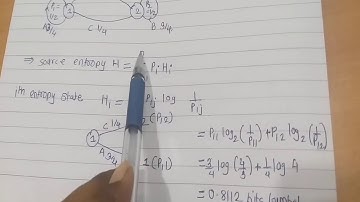 1/2
2
C 1/4
A 3/4
B 3/4
⇒ source entropy H = Pi Hi
ith entropy state Hi = Pij log 1/Pij
1 C 1/4 2 (P12)
A 3/4 1 (P11)
= P11 log2 (1/P11) + P12 log2 (1/P12)
= 3/4 log (4/3) + 1/4 log 4
= 0.8112 bits/symbol